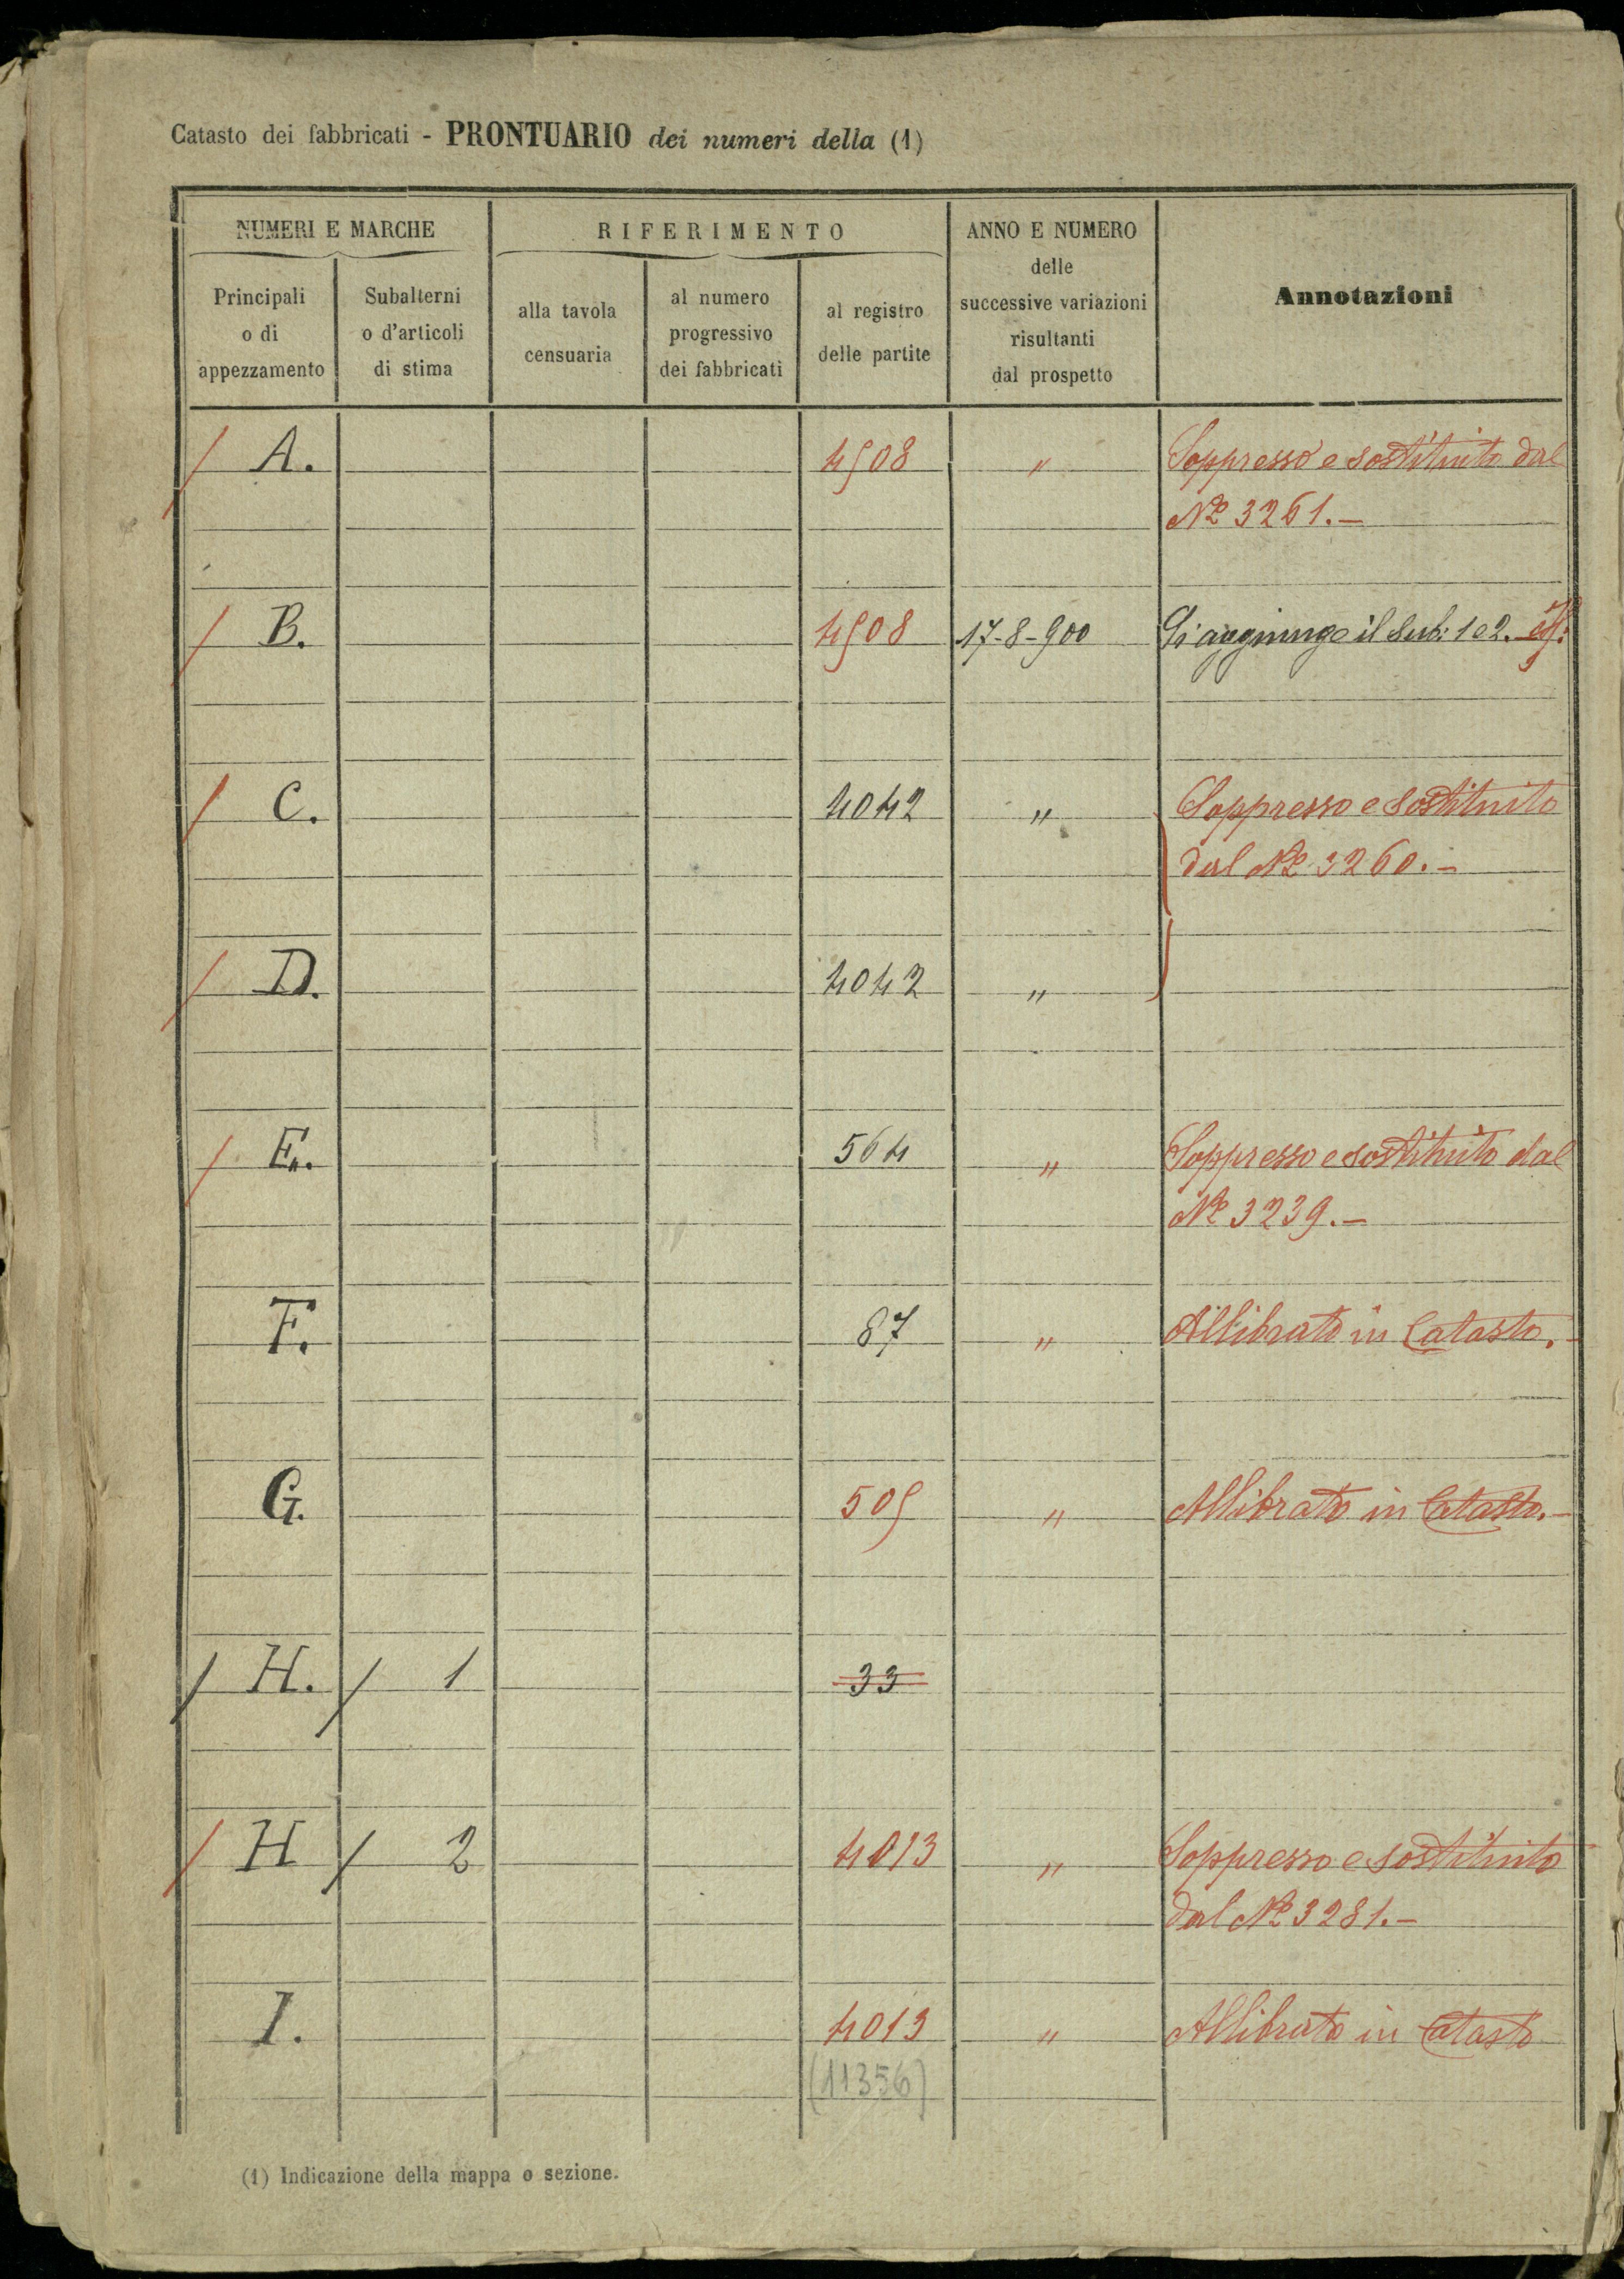 Catasto dei fabbricati - PRONTUARIO dei numeri della (1)
NUMERI E MARCHE
RIFERIMENTO
ANNO E NUMERO
delle
successive variazioni
risultanti
dal prospetto
Annotazioni
Principali
o di
appezzamento
Subalterni
o d'articoli
di stima
alla tavola
censuaria
al numero
progressivo
dei fabbricati
al registro
delle partite
/ A. 4508 " Soppresso e sostituito dal
Nº 3261.-
/ B. 4508 17-8-900 Si aggiunge il Sub: 1 e 2.
/ C. 4042 " Soppresso e sostituito
dal Nº 3260.-
/ D. 4042 "
/ E. 564 " Soppresso e sostituito dal
Nº 3239.-
F. 87 " Allibrato in Catasto.-
G. 505 " Allibrato in Catasto.-
/ H. / 1 33
/ H / 2 4013 " Soppresso e sostituito
dal Nº 3281.-
I. 4013 " Allibrato in Catasto
(11356)
(1) Indicazione della mappa o sezione.